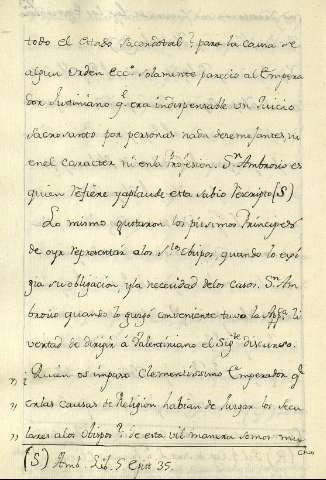 todo el Estado Sacerdotal? para la causa de
algun orden ecc.º solamente parecio al Empera
dor Justiniano q.e era indispensable un Juicio
sacrosanto por personas nada desemejantes ni
en el caracter ni en la Profesion. S.n Ambrosio es
quien refiere y aplaude esta sabio rescripto (S)
Lo mismo gustaron los piisimos Principes
de oyr representar a los S.tos Obispos, quando lo exi
gia su obligacion, y la necesidad de los casos. S.n Am
brosio quando lo juzgó conveniente tuvo la App.ca li
vertad de dirigir á Valentiniano el Sig.te discurso.
" ¿Quién os impuso Clementissimo Emperador q.e
" en las causas de Religion habian de juzgar los secu
" lares a los Obispos?: de esta vil manera somos muy
(S) Amb. Lib. 5 Epist 35.